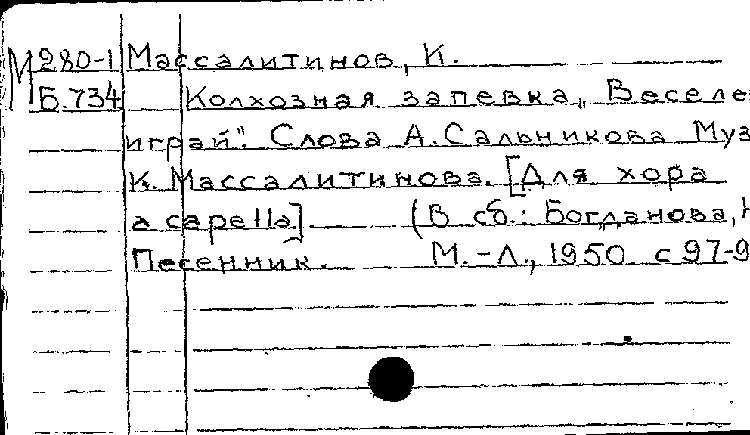 М 280-1 Массалитинов, К.
Б.734 Колхозная запевка „Веселе
играй". Слова А.Сальникова Муз
К. Массалитинова. [Для хора
a capella] (В сб.: Богданова,
Песенник. М.-Л., 1950 с 97-9